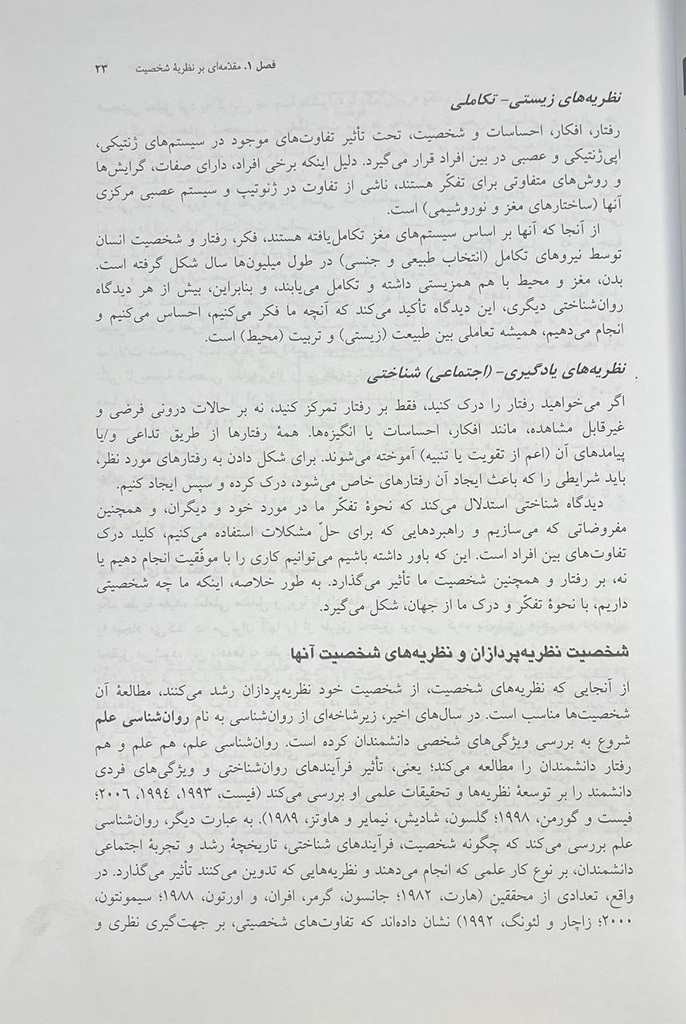 فصل ۱. مقدّمه‌ای بر نظریهٔ شخصیت ۲۳
نظریه‌های زیستی- تکاملی
رفتار، افکار، احساسات و شخصیت، تحت تأثیر تفاوت‌های موجود در سیستم‌های ژنتیکی،
اپی‌ژنتیکی و عصبی در بین افراد قرار می‌گیرد. دلیل اینکه برخی افراد، دارای صفات، گرایش‌ها
و روش‌های متفاوتی برای تفکّر هستند، ناشی از تفاوت در ژنوتیپ و سیستم عصبی مرکزی
آنها (ساختارهای مغز و نوروشیمی) است.
از آنجا که آنها بر اساس سیستم‌های مغز تکامل‌یافته هستند، فکر، رفتار و شخصیت انسان
توسط نیروهای تکامل (انتخاب طبیعی و جنسی) در طول میلیون‌ها سال شکل گرفته است.
بدن، مغز و محیط با هم همزیستی داشته و تکامل می‌یابند، و بنابراین، بیش از هر دیدگاه
روان‌شناختی دیگری، این دیدگاه تأکید می‌کند که آنچه ما فکر می‌کنیم، احساس می‌کنیم و
انجام می‌دهیم، همیشه تعاملی بین طبیعت (زیستی) و تربیت (محیط) است.
نظریه‌های یادگیری- (اجتماعی) شناختی
اگر می‌خواهید رفتار را درک کنید، فقط بر رفتار تمرکز کنید، نه بر حالات درونی فرضی و
غیرقابل مشاهده، مانند افکار، احساسات یا انگیزه‌ها. همهٔ رفتارها از طریق تداعی و/یا
پیامدهای آن (اعم از تقویت یا تنبیه) آموخته می‌شوند. برای شکل دادن به رفتارهای مورد نظر،
باید شرایطی را که باعث ایجاد آن رفتارهای خاص می‌شود، درک کرده و سپس ایجاد کنیم.
دیدگاه شناختی استدلال می‌کند که نحوهٔ تفکّر ما در مورد خود و دیگران، و همچنین
مفروضاتی که می‌سازیم و راهبردهایی که برای حلّ مشکلات استفاده می‌کنیم، کلید درک
تفاوت‌های بین افراد است. این که باور داشته باشیم می‌توانیم کاری را با موفّقیت انجام دهیم یا
نه، بر رفتار و همچنین شخصیت ما تأثیر می‌گذارد. به طور خلاصه، اینکه ما چه شخصیتی
داریم، با نحوهٔ تفکّر و درک ما از جهان، شکل می‌گیرد.
شخصیت نظریه‌پردازان و نظریه‌های شخصیت آنها
از آنجایی که نظریه‌های شخصیت، از شخصیت خود نظریه‌پردازان رشد می‌کنند، مطالعهٔ آن
شخصیت‌ها مناسب است. در سال‌های اخیر، زیرشاخه‌ای از روان‌شناسی به نام روان‌شناسی علم
شروع به بررسی ویژگی‌های شخصی دانشمندان کرده است. روان‌شناسی علم، هم علم و هم
رفتار دانشمندان را مطالعه می‌کند؛ یعنی، تأثیر فرآیندهای روان‌شناختی و ویژگی‌های فردی
دانشمند را بر توسعهٔ نظریه‌ها و تحقیقات علمی او بررسی می‌کند (فیست، ۱۹۹۳، ۱۹۹۴، ۲۰۰۶؛
فیست و گورمن، ۱۹۹۸؛ گلسون، شادیش، نیمایر و هاوتز، ۱۹۸۹). به عبارت دیگر، روان‌شناسی
علم بررسی می‌کند که چگونه شخصیت، فرآیندهای شناختی، تاریخچهٔ رشد و تجربهٔ اجتماعی
دانشمندان، بر نوع کار علمی که انجام می‌دهند و نظریه‌هایی که تدوین می‌کنند تأثیر می‌گذارد. در
واقع، تعدادی از محققین (هارت، ۱۹۸۲؛ جانسون، گرمر، افران، و اورتون، ۱۹۸۸؛ سیمونتون،
۲۰۰۰؛ زاچار و لئونگ، ۱۹۹۲) نشان داده‌اند که تفاوت‌های شخصیتی، بر جهت‌گیری نظری و